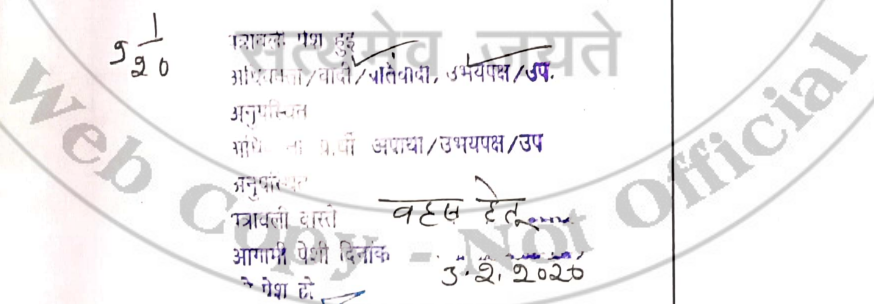 9 1/20
पत्रावली पेश हुई
अधिवक्ता/वादी/प्रतिवादी, उभयपक्ष/उप.
अनुपस्थित
प्रार्थी अप्रार्थी/उभयपक्ष/उप
अनुपस्थित
पत्रावली वास्ते बहस हेतु
आगामी पेशी दिनांक 3.2.2020
को पेश हो
सत्यमेव जयते
Web Copy - Not Official